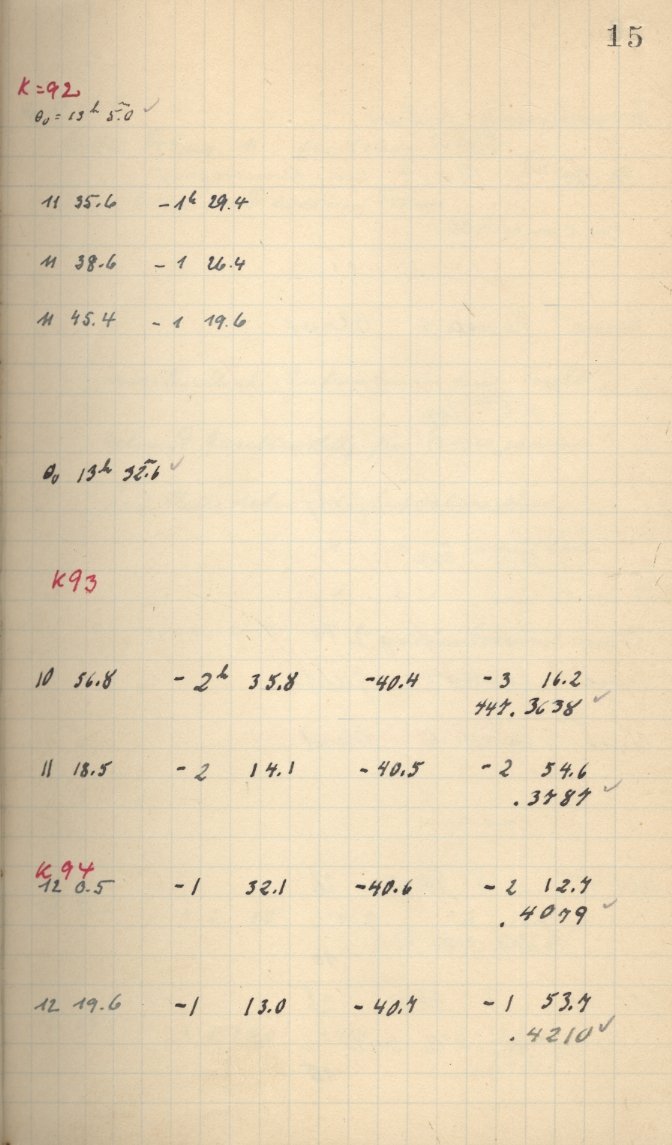 15
K=92
θ₀ = 13ʰ 5.ᵐ0 ✓
11 35.6 -1ʰ 29.4
11 38.6 - 1 26.4
11 45.4 - 1 19.6
θ₀ 13ʰ 32.ᵐ6 ✓
K93
10 56.8 - 2ʰ 35.8 -40.4 - 3 16.2
747.3638 ✓
11 18.5 - 2 14.1 - 40.5 - 2 54.6
.3787 ✓
K94
12 0.5 -1 32.1 -40.6 - 2 12.7
.4079 ✓
12 19.6 -1 13.0 - 40.7 - 1 53.7
.4210 ✓